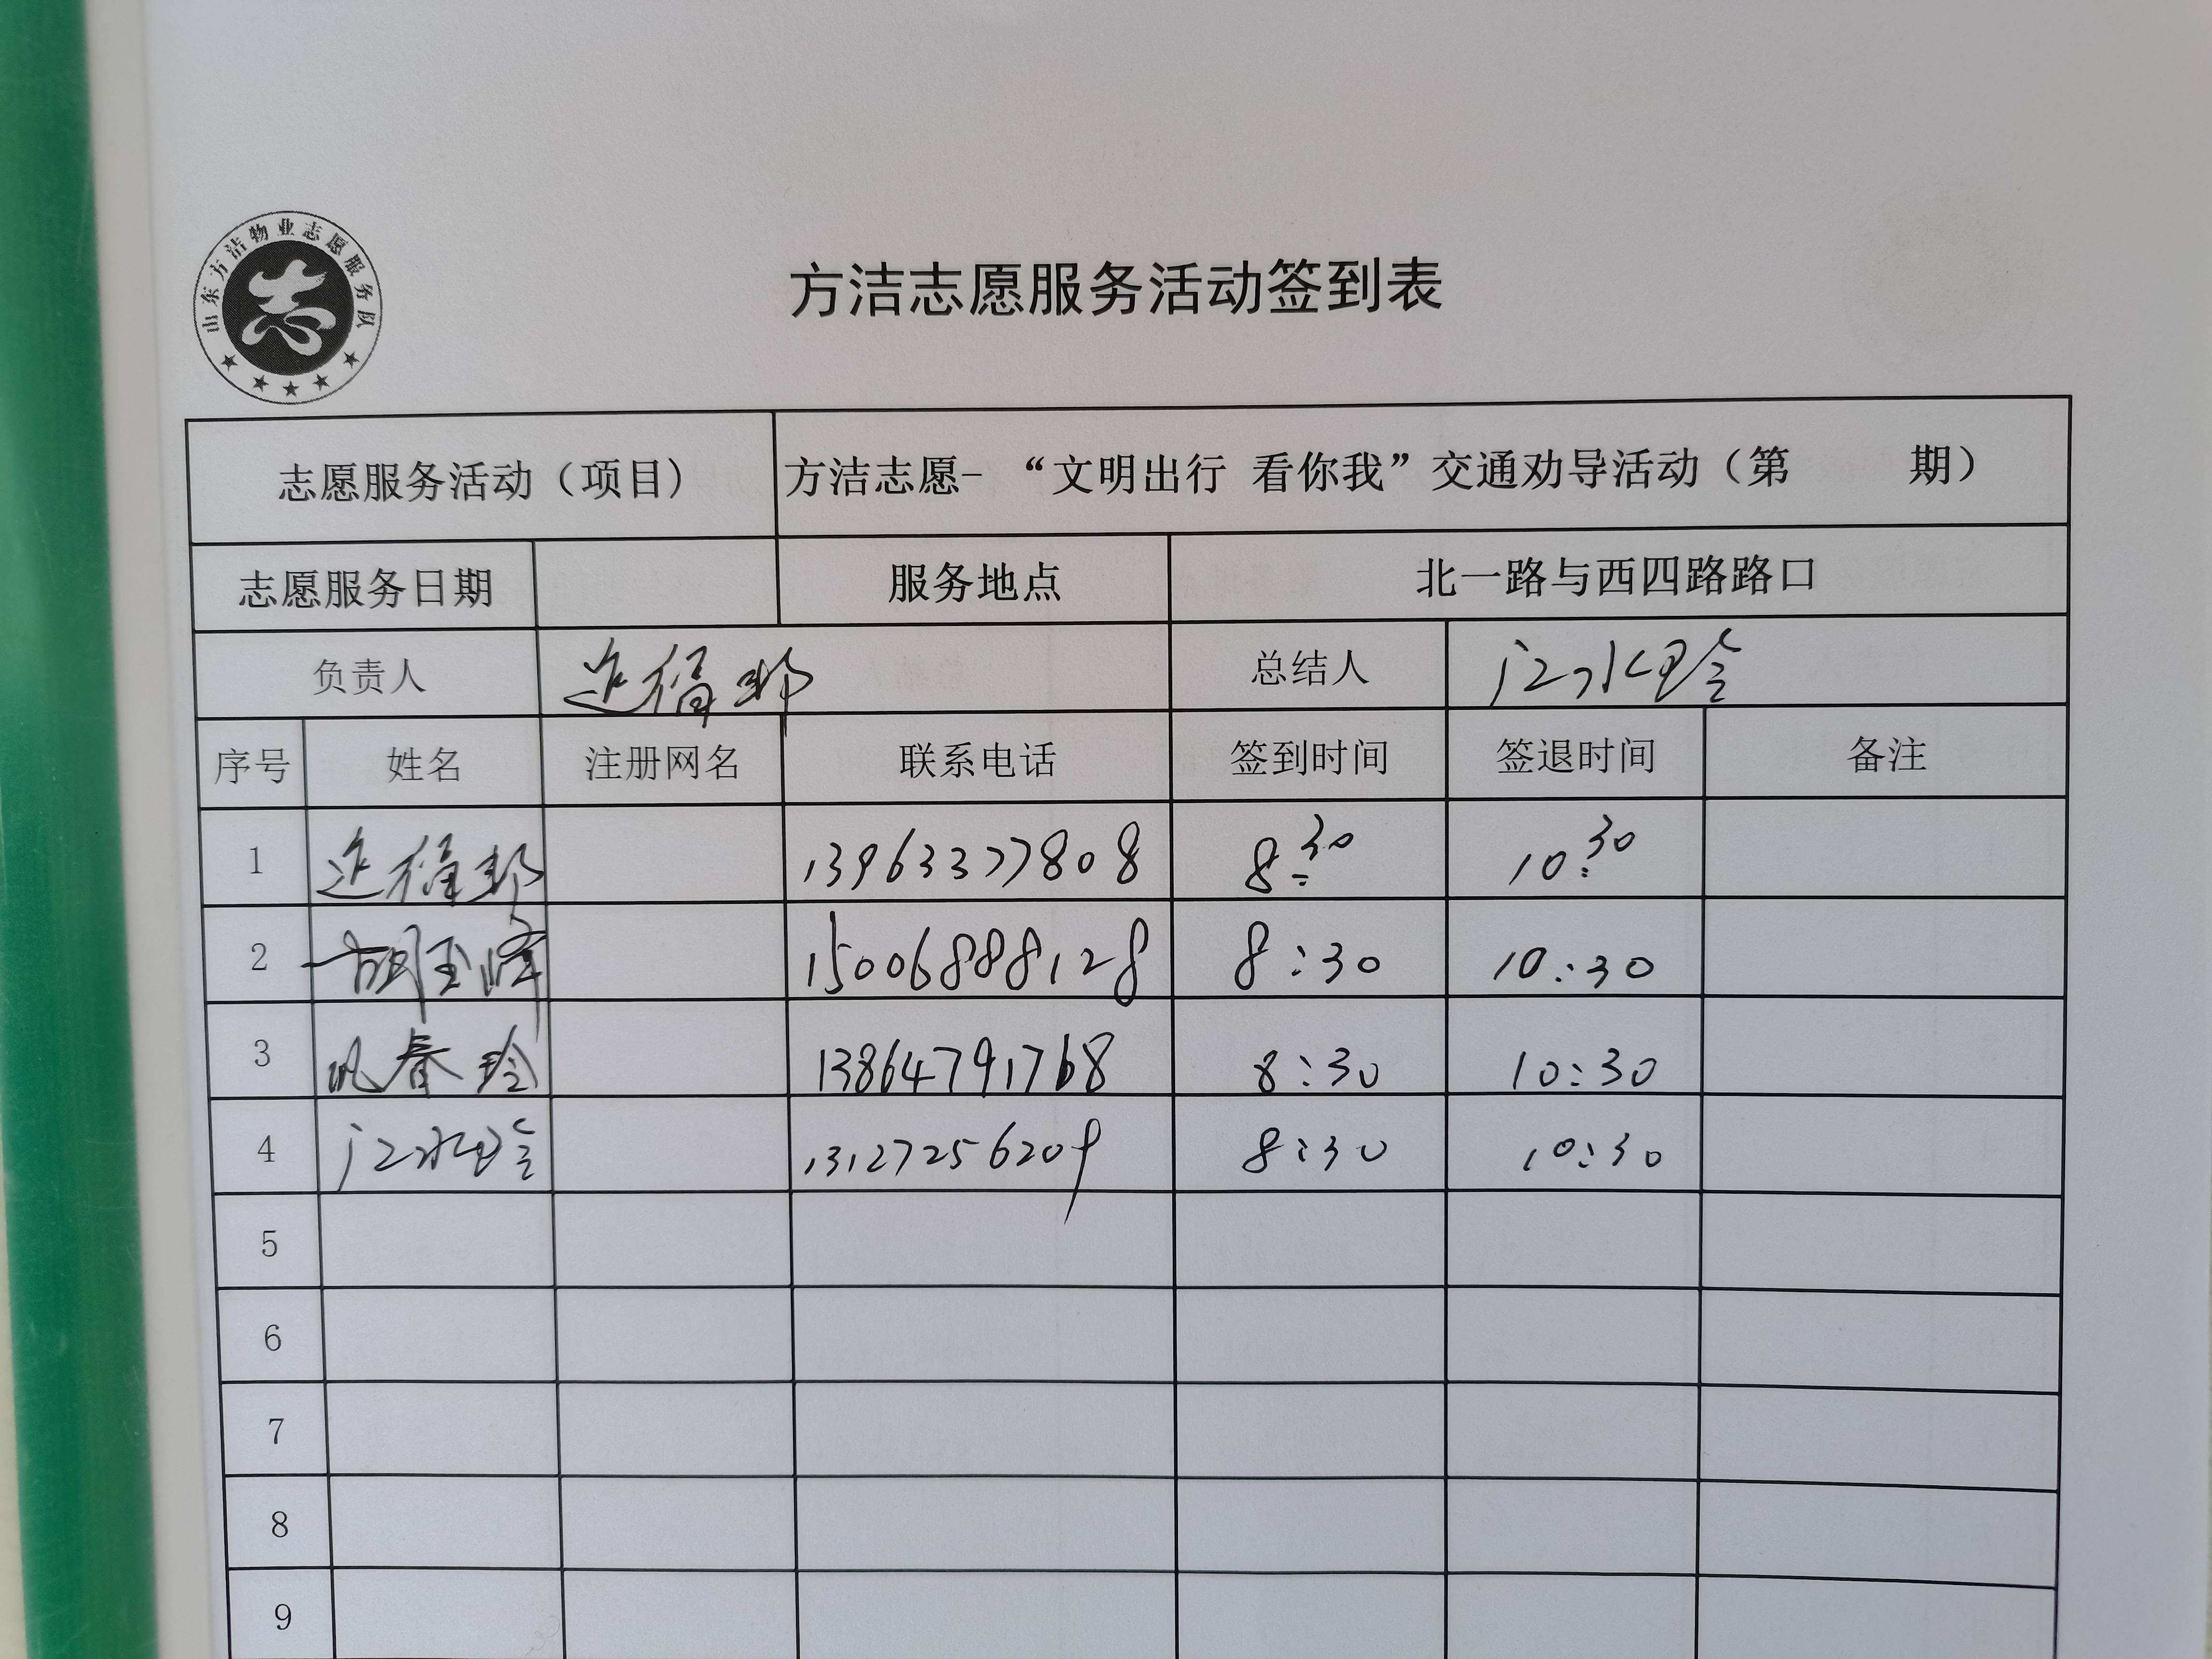 山东方洁物业志愿服务队
志
方洁志愿服务活动签到表
志愿服务活动（项目） 方洁志愿-“文明出行 看你我”交通劝导活动（第 期）
志愿服务日期 服务地点 北一路与西四路路口
负责人 总结人 江水玲
序号 姓名 注册网名 联系电话 签到时间 签退时间 备注
1 13963377808 8:30 10:30
2 胡玉峰 15006888128 8:30 10:30
3 春玲 13864791768 8:30 10:30
4 江水玲 13127256209 8:30 10:30
5
6
7
8
9